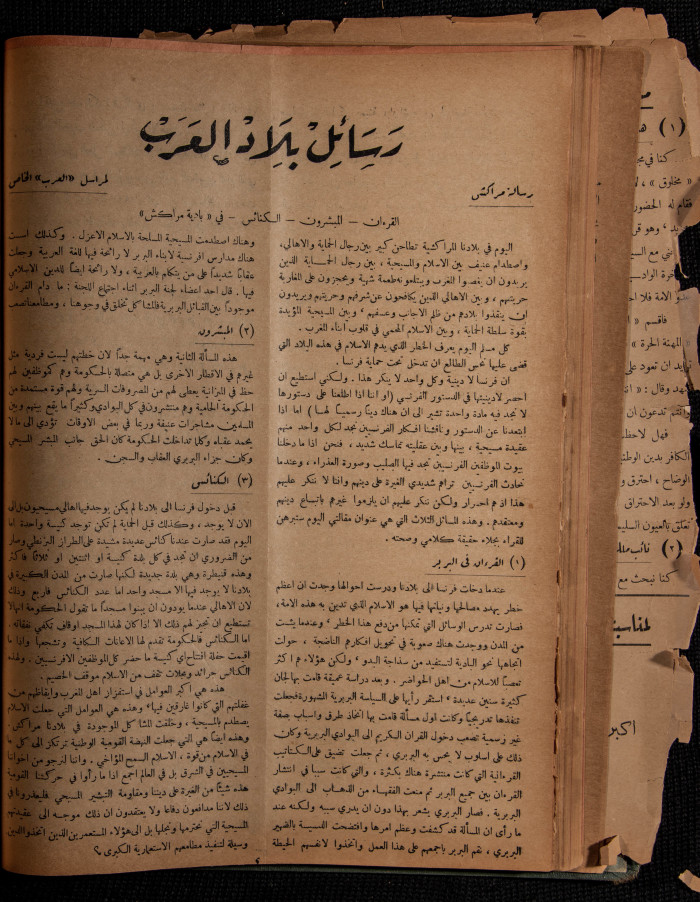 رَسَائِلْ بِلَادْ الْعَرَبْ
رسالة مراكش
لمراسل «العرب» الخاص
القرءان — المبشرون — الكنائس — في «بادية مراكش»
اليوم في بلادنا المراكشية تطاحن كبير بين رجال الحماية والاهالي،
واصطدام عنيف بين الاسلام والمسيحية، بين رجال الحماية الذين
يريدون ان يغصوا الغرب ويبتلعونه طعمة شهية ويحجزون على المغاربة
حريتهم، وبين الاهالي الذين يكافحون عن شرفهم وحريتهم ويريدون
ان ينقذوا بلادهم من ظلم الاجانب وعسفهم، وبين المسيحية المؤيدة
بقوة سلطة الحماية، وبين الاسلام المحمي في قلوب أبناء المغرب.
كل مسلم اليوم يعرف الخطر الذي يدهم الاسلام في هذه البلاد التي
قضى عليها نحس الطالع ان تدخل تحت حماية فرنسا.
ان فرنسا لا دينية وكل واحد لا ينكر هذا. ولكني استطيع ان
احصر لادينيتها في الدستور الفرنسي (او اننا اذا اطلعنا على دستورها
لا نجد فيه مادة واحدة تشير الى ان هناك ديناً رسمياً لها) اما اذا
ابتعدنا عن الدستور وناقشنا افكار الفرنسيين نجد لكل واحد منهم
عقيدة مسيحية، بينها وبين عقليته تماسك شديد، فنحن اذا ما دخلنا
بيوت الموظفين الفرنسيين نجد فيها الصليب وصورة العذراء، وعندما
نحادث الفرنسيين نراهم شديدي الغيرة على دينهم واننا لا ننكر عليهم
هذا اذ هم احرار ولكن ننكر عليهم ان يلزموا غيرهم باتباع دينهم
ومعتقدهم. وهذه المسائل الثلاث التي هي عنوان مقالتي اليوم ستبرهن
للقراء بجلاء حقيقة كلامي وصحته.
(١) القرءان في البربر
عندما دخلت فرنسا الى بلادنا ودرست احوالها وجدت ان اعظم
خطر يهدد مصالحها ونياتها فيها هو الاسلام الذي تدين به هذه الامة،
فصارت تدرس الوسائل التي تمكنها من دفع هذا الخطر، وعندما يئست
من المدن ووجدت هناك صعوبة في تحويل افكارهم الناضجة، حولت
اتجاهها نحو البادية لتستفيد من سذاجة البدو، ولكن هؤلاء هم اكثر
تعصباً للاسلام من اهل الحواضر. وبعد دراسة عميقة قامت بها لجان
كثيرة سنين عديدة، استقر رأيها على السياسة البربرية المشهورة فجعلت
تنفذها تدريجياً وكانت اول مسألة قامت بها اتخاذ طرق واسباب بصفة
غير رسمية تصعب دخول القران الكريم الى البوادي البربرية وكان
ذلك على اسلوب لا يحس به البربري، ثم جعلت تضيق على الكتاتيب
القرءانية التي كانت منتشرة هناك بكثرة، والتي كانت سبباً في انتشار
القرءان بين جميع البربر ثم منعت الفقهاء من الذهاب الى البوادي
البربرية. فصار البربري يشعر بهذا دون ان يدري سببه ولكنه عند
ما رأى ان المسألة قد كشفت وعظم امرها وافتضحت الدسيسة بالظهير
البربري، نقم البربر باجمعهم على هذا العمل واتخذوا لانفسهم الحيطة
وهناك اصطدمت المسيحية المسلحة بالاسلام الاعزل. وكذلك است
هناك مدارس افرنسية لابناء البربر لا رائحة فيها للغة العربية وجعلت
عقاباً شديداً على من يتكلم بالعربية، ولا رائحة ايضاً للدين الاسلامي
فيها. قال احد اعضاء لجنة البربر اثناء اجتماع اللجنة: ما دام القرءان
موجوداً بين القبائل البربرية فالمشاكل تخلق في وجوهنا، ومطامعنا تصعب
(٢) المبشرون
هذه المسألة الثانية وهي مهمة جداً لان خطتهم ليست فردية مثل
غيرهم في الاقطار الاخرى بل هي متصلة بالحكومة وهم كموظفين لهم
حظ في الميزانية يعطى لهم من المصروفات السرية ولهم قوة مستمدة من
الحكومة الحامية وهم منتشرون في كل البوادي وكثيراً ما يقع بينهم وبين
المسلمين مشاجرات عنيفة وربما في بعض الاوقات تؤدي الى مالا
يحمد عقباه وكلما تداخلت الحكومة كان الحق جانب المبشر المسيحي
وكان جزاء البربري العقاب والسجن.
(٣) الكنائس
قبل دخول فرنسا الى بلادنا لم يكن يوجد فيها اهالي مسيحيون بل الى
الان لا يوجد، وكذلك قبل الحماية لم تكن توجد كنيسة واحدة اما
اليوم فقد صارت عندنا كنائس عديدة مشيدة على الطراز البزنطي وصار
من الضروري ان تجد في كل بلدة كنيسة او اثنتين او ثلاثاً فاكثر
وهذه قنيطرة وهي بلدة جديدة لكنها صارت من المدن الكبيرة في
بلادنا لا يوجد فيها الا مسجد واحد اما عدد الكنائس فاربع وذلك
لان الاهالي عندما يودون ان يبنوا مسجداً ما تقول الحكومة انها لا
تستطيع ان تجيز لهم ذلك الا اذا كان لهذا المسجد اوقاف تكفي نفقاته.
اما الكنائس فالحكومة تقدم لها الاعانات الكافية وتشجعها واذا ما
اقيمت حفلة افتتاح اي كنيسة ما حضر كل الموظفين الافرنسيين. ولهذه
الكنائس جرائد ومجلات تقف من الاسلام موقف الخصيم.
هذه هي اكبر العوامل في استفزاز اهل المغرب وايقاظهم من
غفلتهم التي كانوا غارقين فيها، وهذه هي العوامل التي جعلت الاسلام
يصطدم بالمسيحية، وخلقت المشاكل الموجودة في بلادنا مراكش،
وهذه ايضاً هي التي جعلت النهضة القومية الوطنية ترتكز الى كل ما
في الاسلام من قوة، الاسلام السمح المؤاخي. واننا لنرجو من اخواننا
المسيحيين في الشرق بل في العالم اجمع اذا ما رأوا في حركتنا القومية
هذه شيئاً من الغيرة على ديننا ومقاومة التبشير المسيحي فليعذرونا في
ذلك لاننا مدافعون دفاعاً ولا يعتقدون ان ذلك موجه الى عقيدتهم
المسيحية التي نحترمها ونجلها بل الى هؤلاء المستعمرين الذين اتخذوا الدين
وسيلة لتنفيذ مطامعهم الاستعمارية الكبرى؟
(١)
كنا في
« مخلوق »
فقام له الحضور
فاقسم
« المهنة الحرة »
ان تعود على
وقال:
تدعون ان
فهل لاحظ
الكافر بدين الوطني
ولو بعد الاحتراق
(٢) نائب
كنا نبحث مع
لمناسبة
اكبر